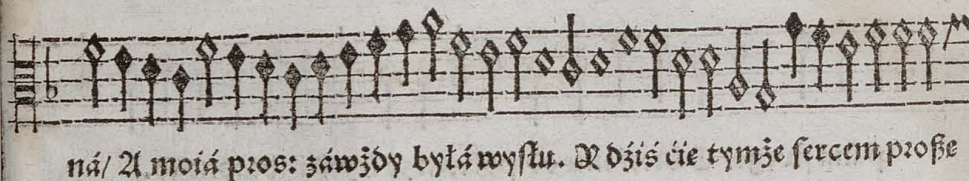 ná/ A moiá pros: záwżdy byłá wysłu. A dźiś ćie tymże ſercem proßę